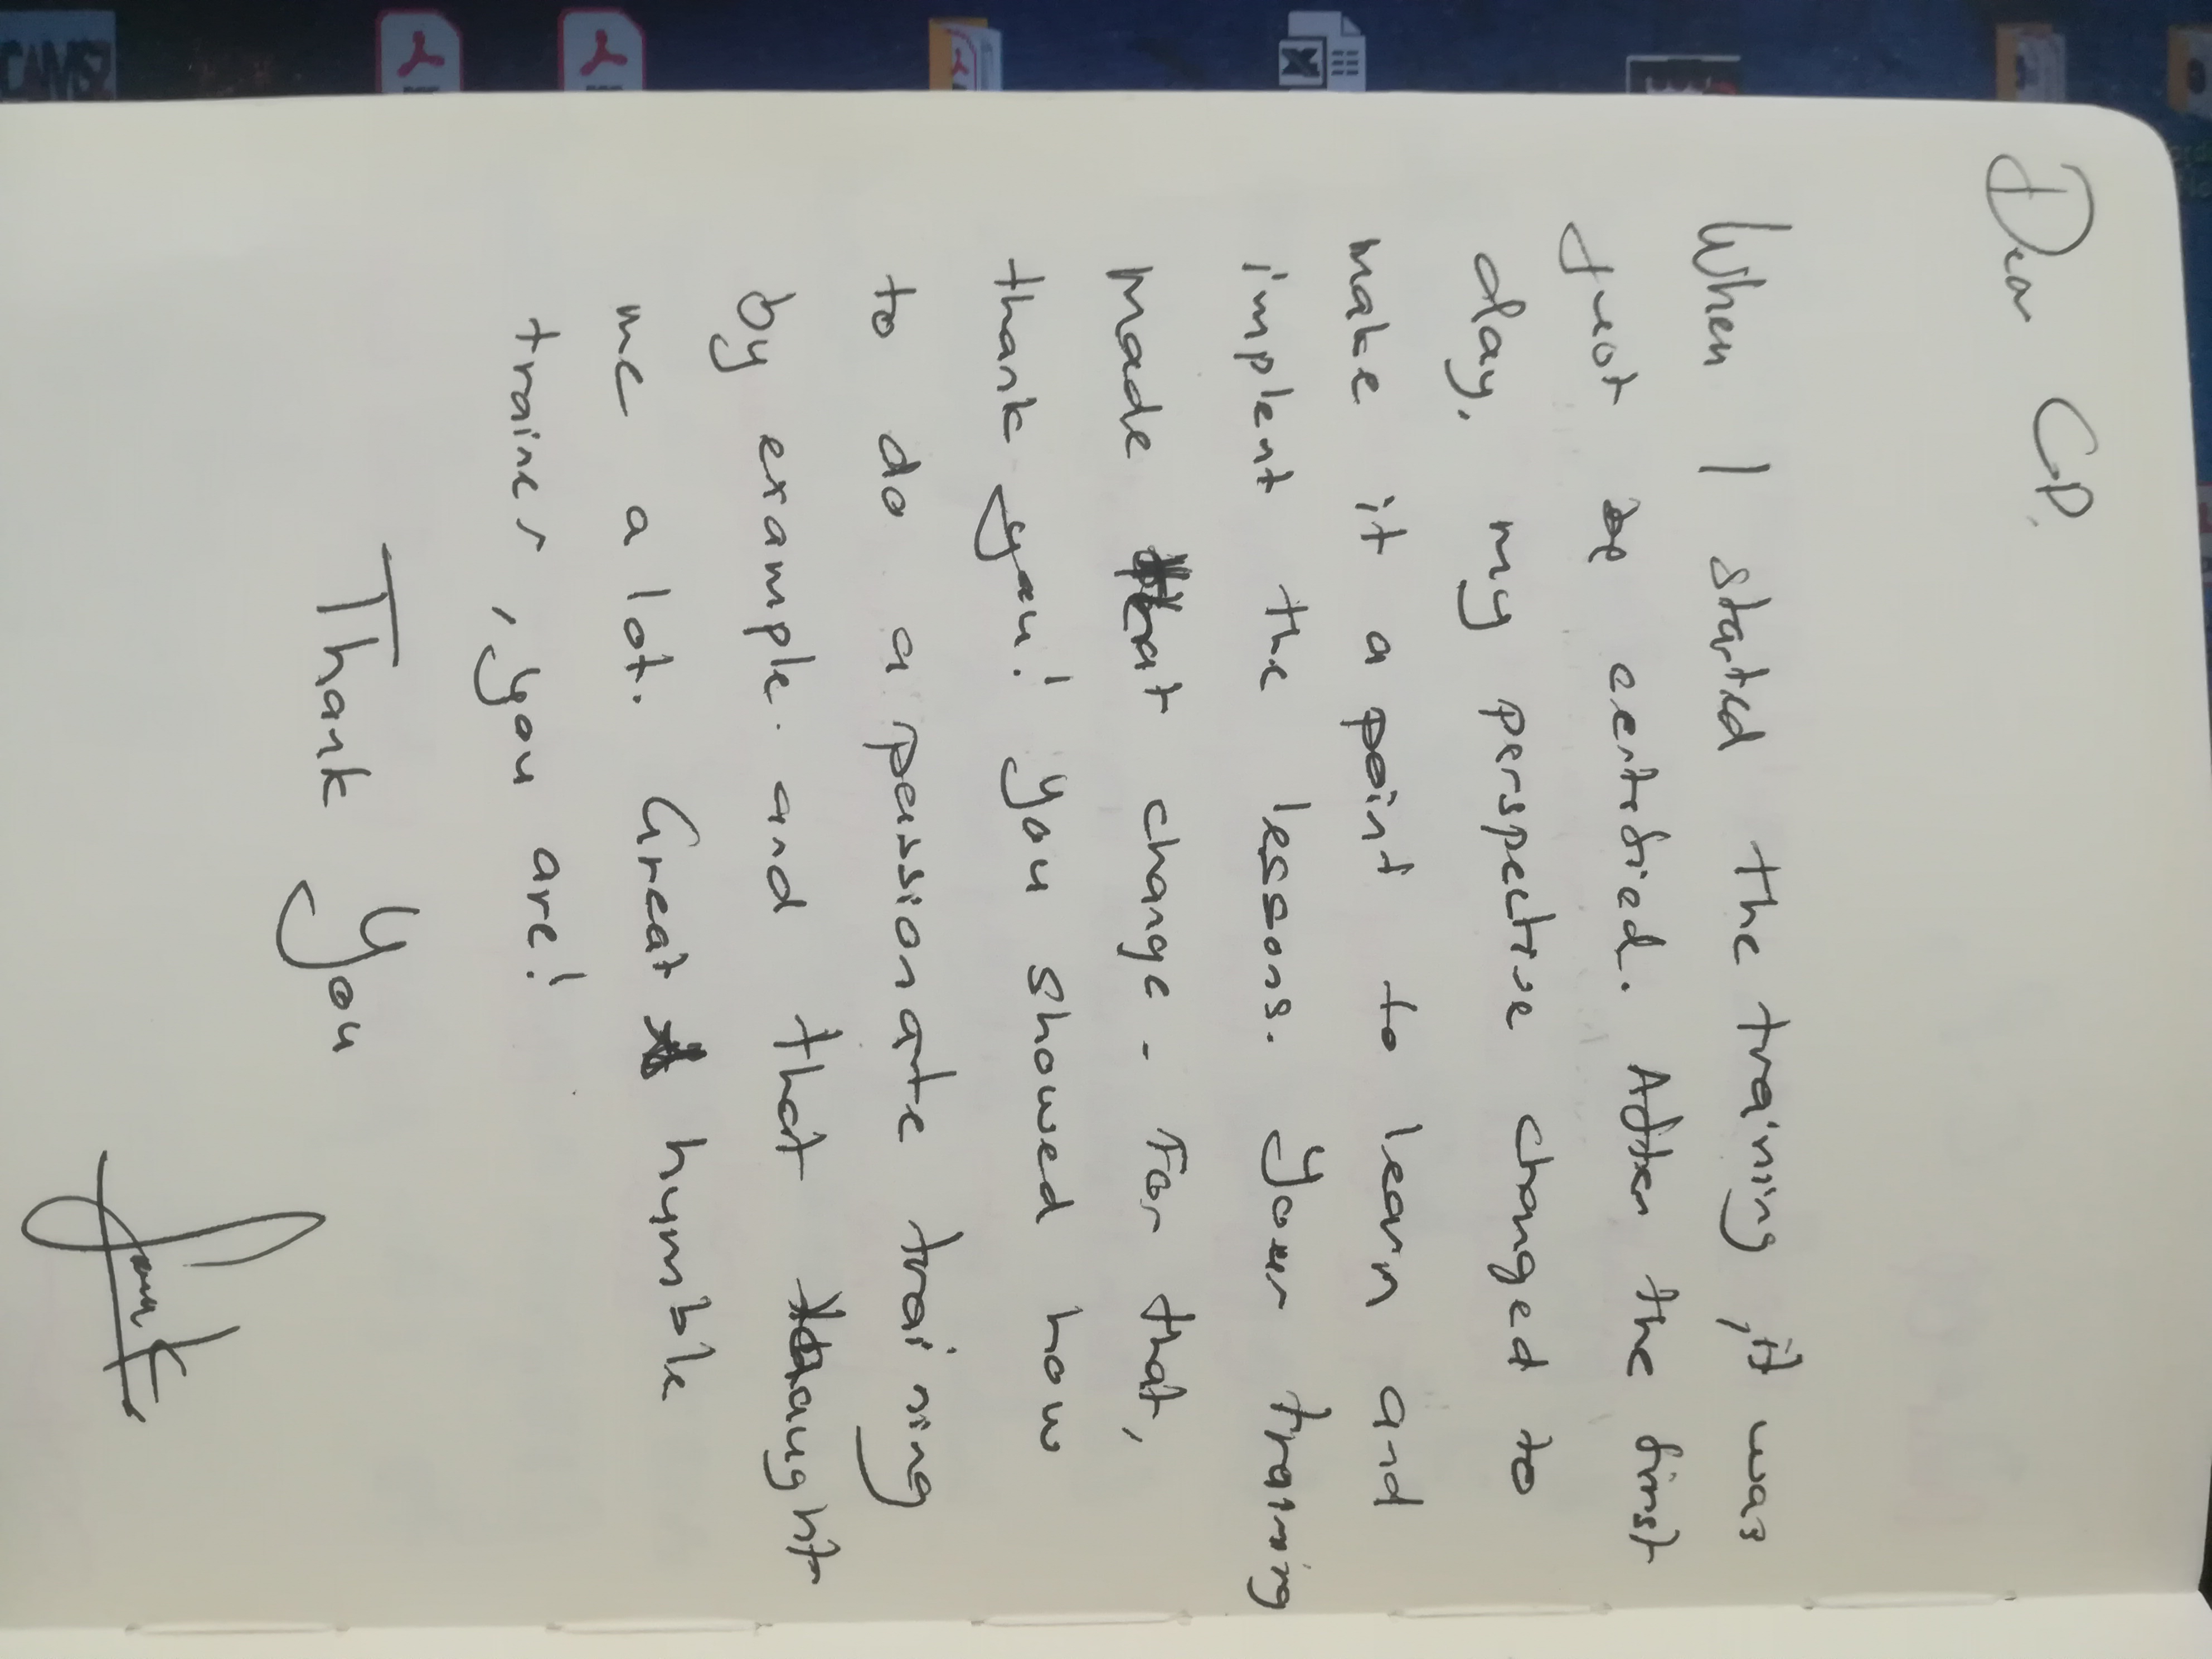 Dear CP.
When I started the training, it was
just to be certified. After the first
day, my perspective changed to
make it a point to learn and
implent the lessons. Your training
made that change. For that,
thank you! You showed how
to do a passionate training
by example. and that taught
me a lot. Great humble
trainer, you are!
Thank You